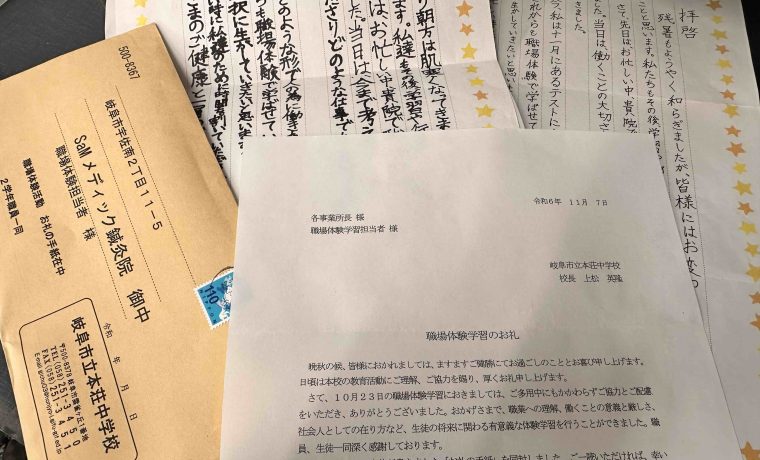 令和6年 11月 7日
各事業所長 様
職場体験学習担当者 様
岐阜市立本荘中学校
校長 上松 英隆
職場体験学習のお礼
晩秋の候、皆様におかれましては、ますますご健勝にてお過ごしのこととお喜び申し上げます。
日頃は本校の教育活動にご理解、ご協力を賜り、厚くお礼申し上げます。
さて、10月23日の職場体験学習におきましては、ご多用中にもかかわらずご協力とご配慮
をいただき、ありがとうございました。おかげさまで、職業への理解、働くことの意義と厳しさ、
社会人としての在り方など、生徒の将来に関わる有意義な体験学習を行うことができました。職
員、生徒一同深く感謝しております。
500-8367
岐阜市宇佐南2丁目11-5
SaMメディック鍼灸院 御中
職場体験担当者 様
職場体験活動 お礼の手紙在中
2学年職員一同
110
令和 年 月 日
岐阜市立本荘中学校
TEL(058)251-3450
FAX(058)251-3451
拝啓
残暑もようやく和らぎましたが、皆様にはお変わ
ことと思います。私たちもその後学習
さて、先日はお忙しい中、貴院で
きました。当日は、働くことの大切さ
今、私は十一月にあるテストに
れからも職場体験で学ばせて
生かしていきたいと思いま
り朝方は肌寒くなってきま
ます。私達もその後学習や行
は、お忙しい中貴院で
した。当日は今まで考え
さりどのような仕事で
どのような形で人の為に働き
らも職場体験で学ばせてい
択に生かしていきたい思いま
時に私達のために時間を割いて
さまのご健康とご